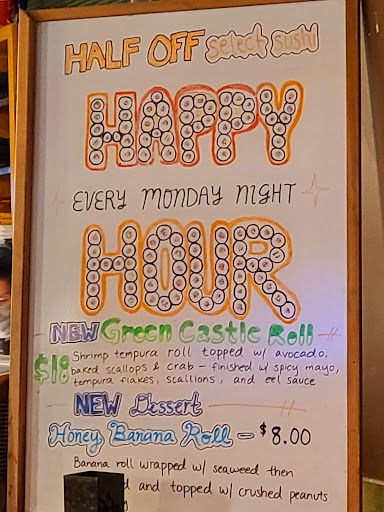 HALF OFF select sushi
HAPPY
EVERY MONDAY NIGHT
HOUR
NEW Green Castle Roll
$18 Shrimp tempura roll topped w/ avocado,
baked scallops & crab - finished w/ spicy mayo,
tempura flakes, scallions, and eel sauce
NEW Dessert
Honey Banana Roll - $8.00
Banana roll wrapped w/ seaweed then
and topped w/ crushed peanuts